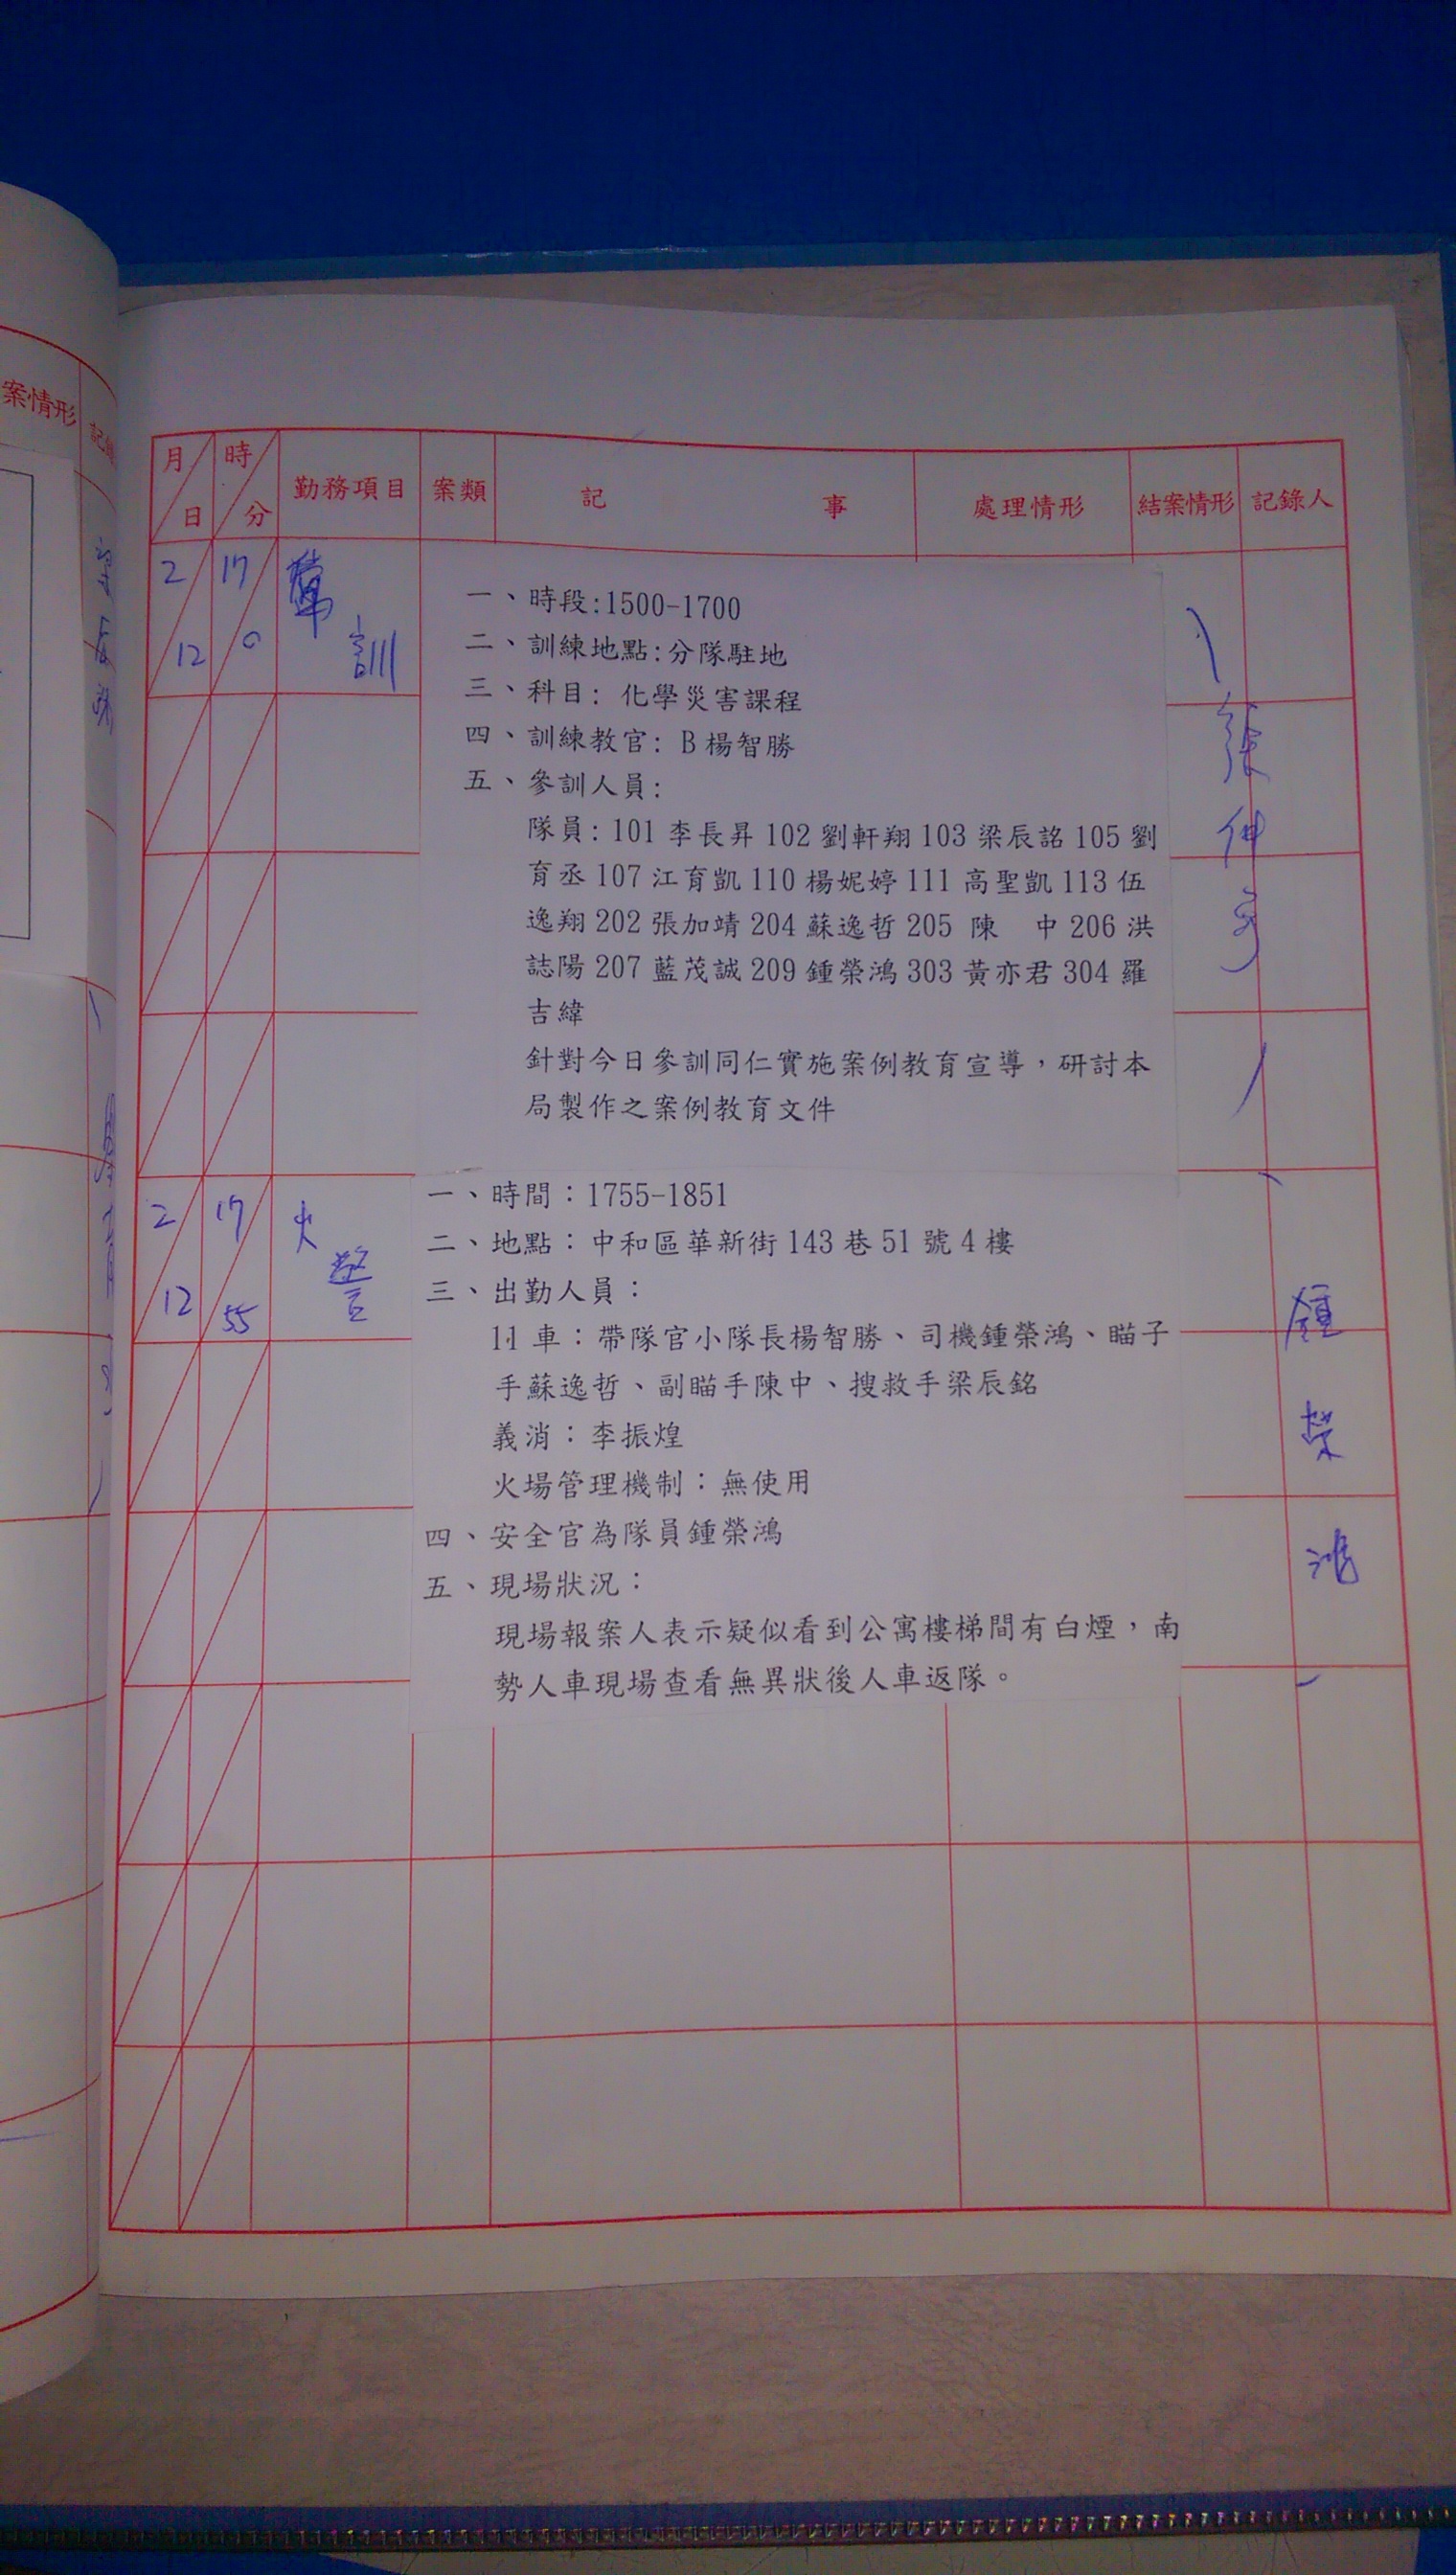 案情形
月 日 時 分 勤務項目 案類 記 事 處理情形 結案情形 記錄人
2 12 17 0
訓
一、時段:1500-1700
二、訓練地點:分隊駐地
三、科目: 化學災害課程
四、訓練教官: B楊智勝
五、參訓人員:
隊員: 101 李長昇 102 劉軒翔 103 梁辰詺 105 劉
育丞 107 江育凱 110 楊妮婷 111 高聖凱 113 伍
逸翔 202 張加靖 204 蘇逸哲 205 陳 中 206 洪
誌陽 207 藍茂誠 209 鍾榮鴻 303 黃亦君 304 羅
吉緯
針對今日參訓同仁實施案例教育宣導，研討本
局製作之案例教育文件
張仲
2 12 17 55
火警
一、時間：1755-1851
二、地點：中和區華新街 143 巷 51 號 4 樓
三、出勤人員：
11 車：帶隊官小隊長楊智勝、司機鍾榮鴻、瞄子
手蘇逸哲、副瞄手陳中、搜救手梁辰銘
義消：李振煌
火場管理機制：無使用
四、安全官為隊員鍾榮鴻
五、現場狀況：
現場報案人表示疑似看到公寓樓梯間有白煙，南
勢人車現場查看無異狀後人車返隊。
鍾榮鴻